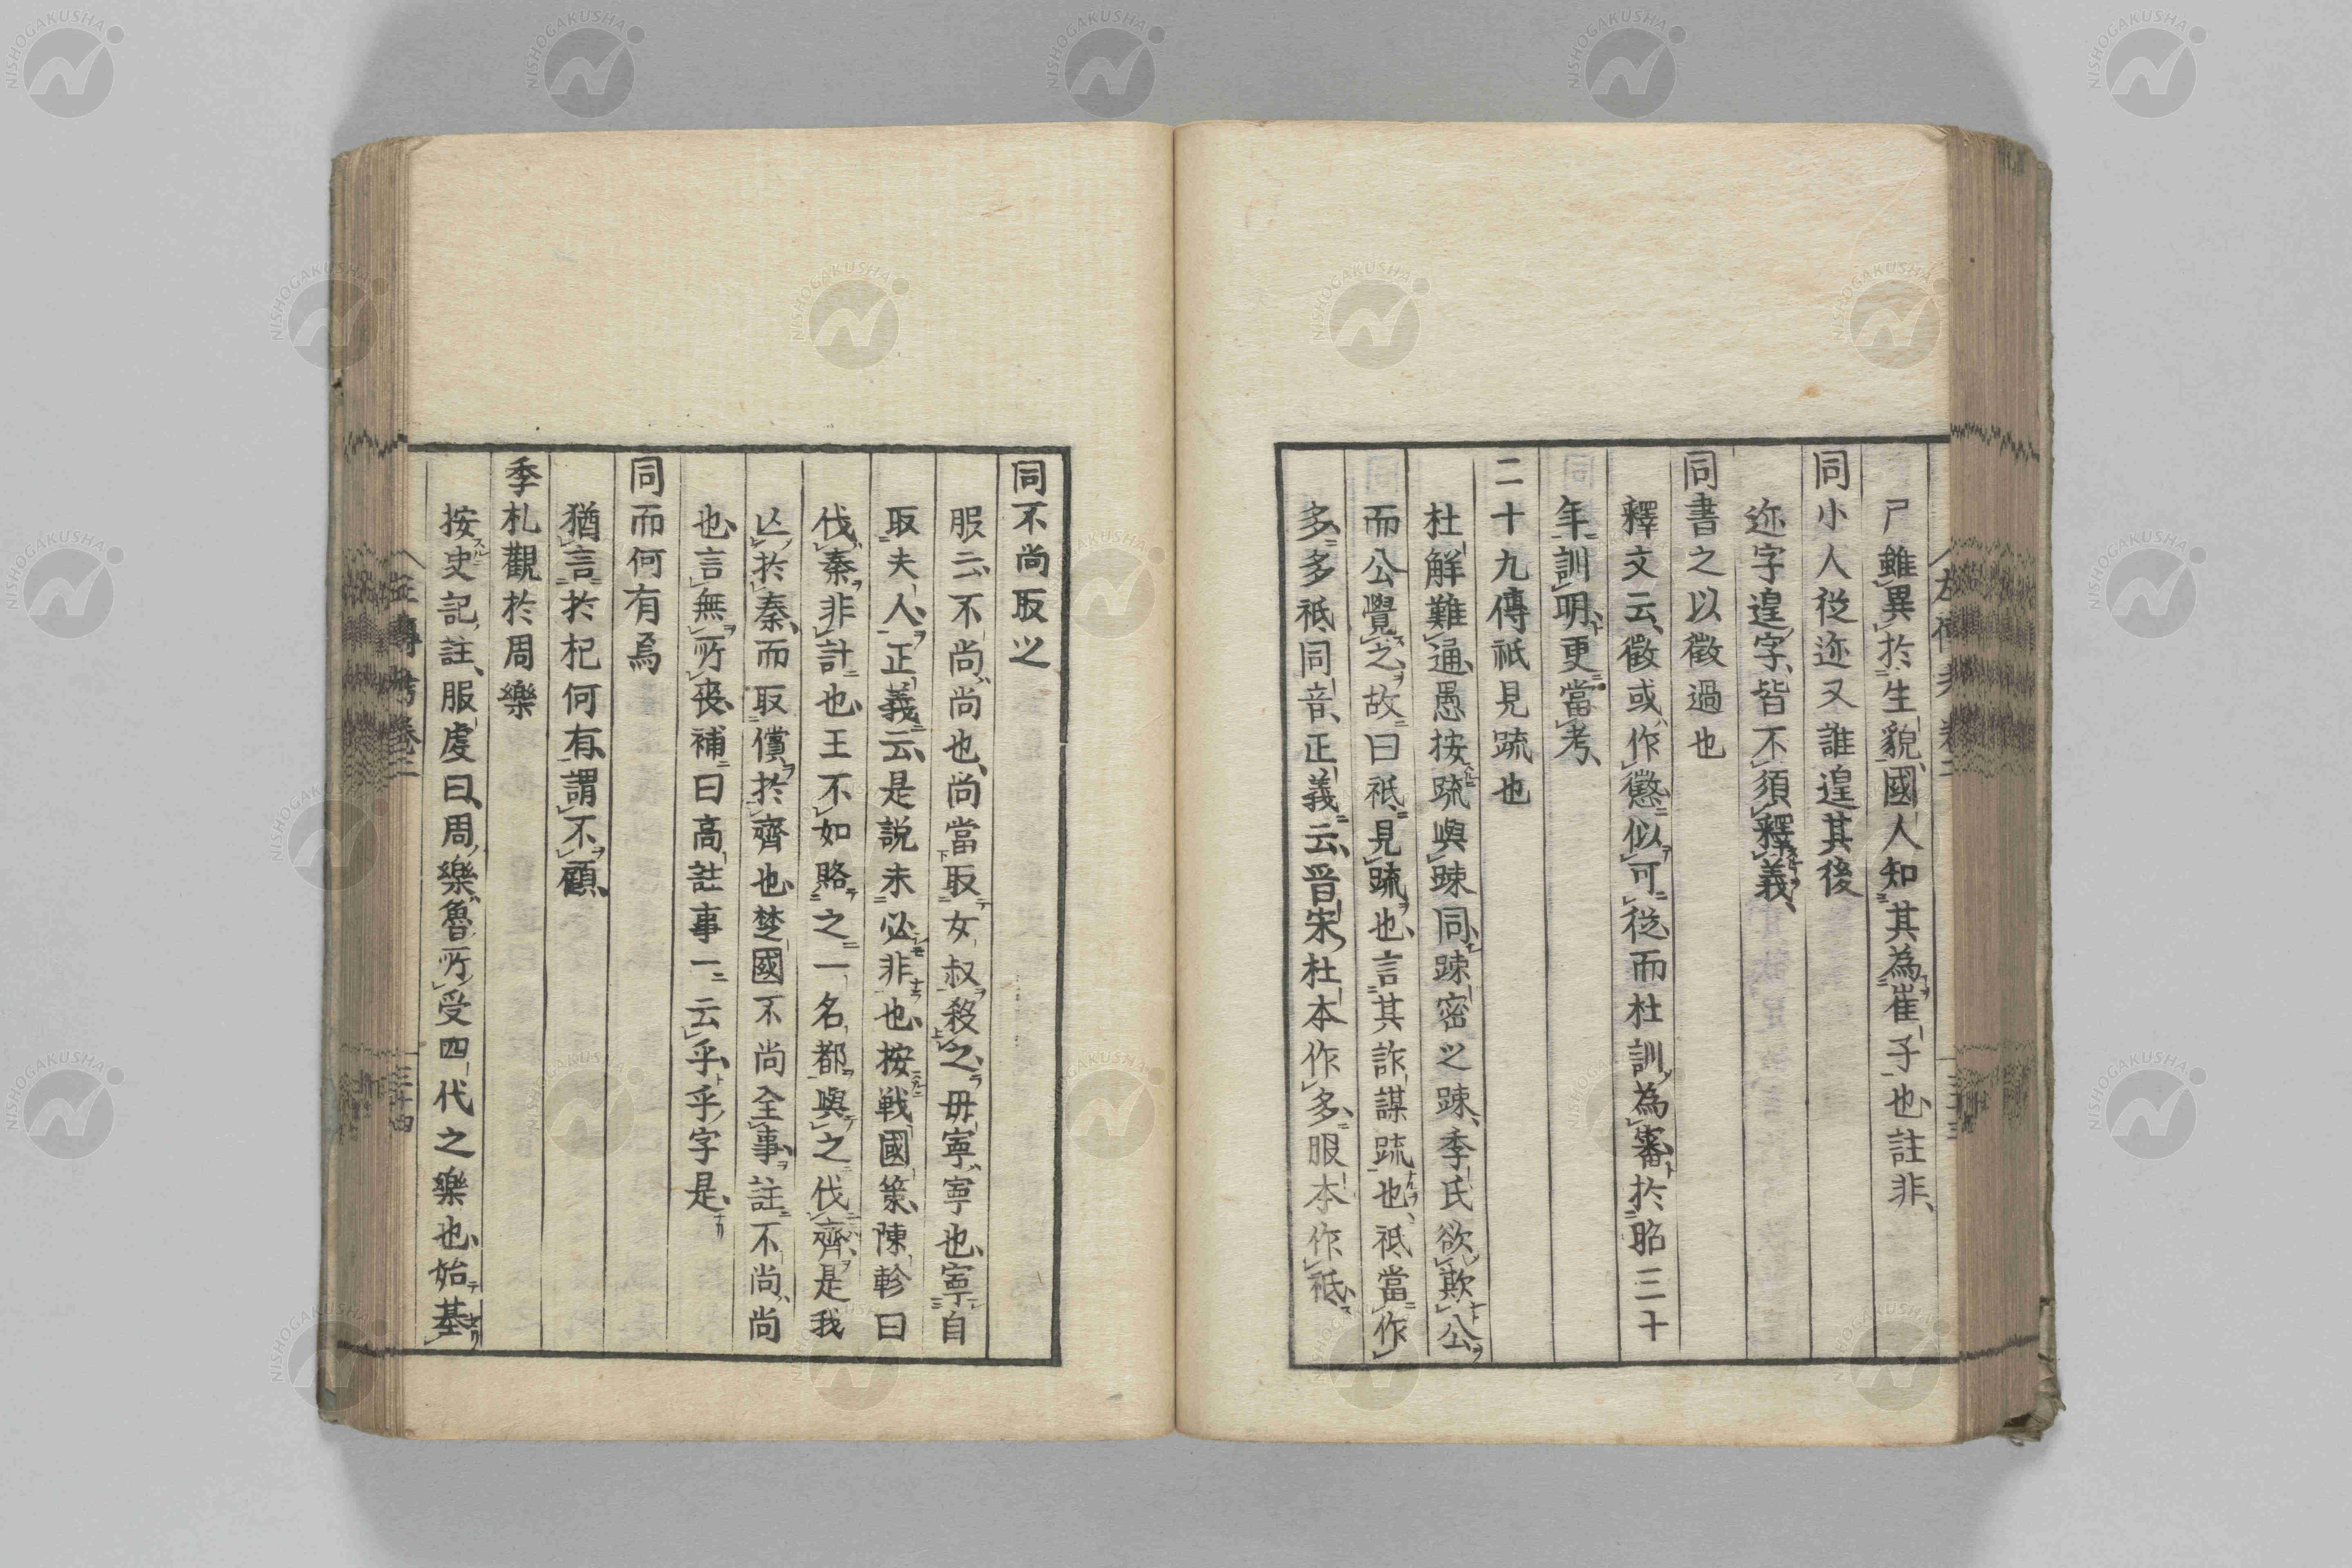 尸雖異於生貌國人知其為崔子也註非
同小人從迩又誰遑其後
迩字遑字皆不須釋義
同書之以徵過也
釋文云徵或作懲似可從而杜訓為審於昭三十
年訓明更當考
二十九傳祇見疏也
杜解難通愚按疏與踈同踈密之踈季氏欲欺公
而公覺之故曰祇見疏也言其詐謀疏也祇當作
多多祇同音正義云晋宋杜本作多服本作祇
同不尚取之
服云不尚尚也尚當取女叔殺之毋寧寧也寧自
取夫人正義云是說未必非也按戰國策陳軫曰
伐秦非計也王不如賂之一名都與之伐齊是我
亾於秦而取償於齊也楚國不尚全事註不尚尚
也言無所丧補曰高註事一云乎乎字是
同而何有焉
猶言於杞何有謂不顧
季札觀於周樂
按史記註服虔曰周樂魯所受四代之樂也始基
左傳考卷二
三十四
NISHOGAKUSHA